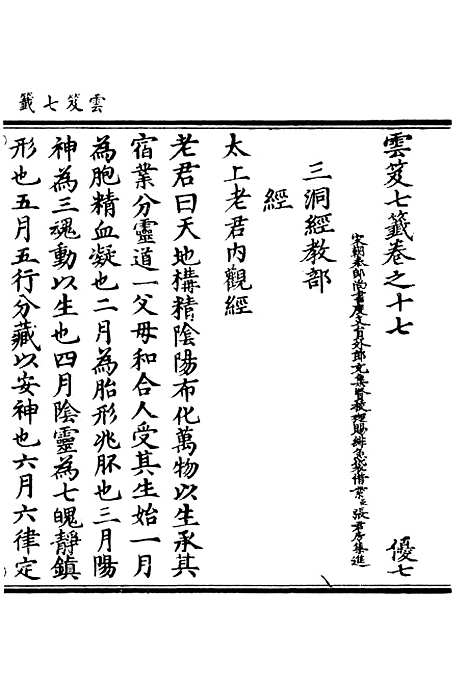 雲笈七籤
雲笈七籤卷之十七
優七
宋朝奉郎尚書度支員外郎充集賢校理賜緋魚袋借紫臣張君房集進
三洞經教部
經
太上老君內觀經
老君曰天地構精陰陽布化萬物以生承其
宿業分靈道一父母和合人受其生始一月
為胞精血凝也二月為胎形兆胚也三月陽
神為三魂動以生也四月陰靈為七魄靜鎮
形也五月五行分藏以安神也六月六律定